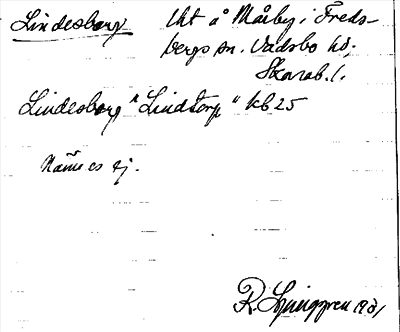 Lindesborg lht å Måby i Freds-
bergs sn. Vadsbo hd,
Skarab. l.
Lindesborg "Lindtorp" kb 25
Nämnes ej.
R. Ljunggren 1931